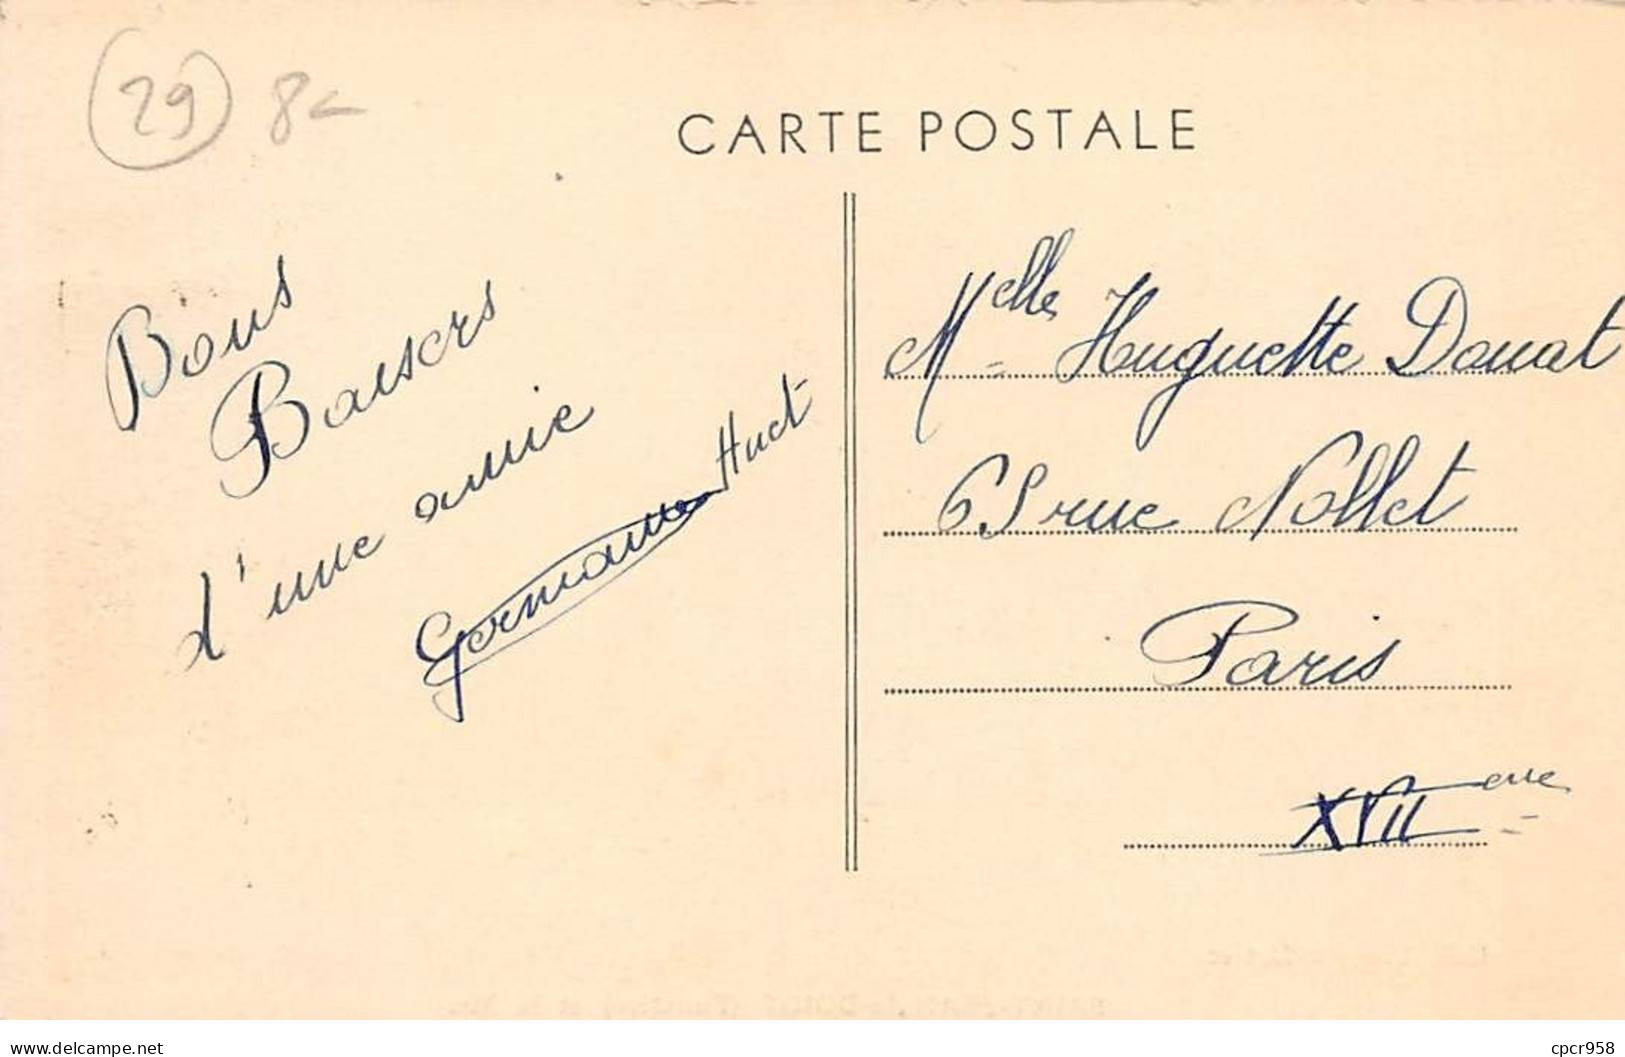 29 8
CARTE POSTALE
Bons
Baisers
d'une amie
Germaine Huet
Melle Huguette Douat
65 rue Nollet
Paris
XVII eme
delcampe.net
cpcr958